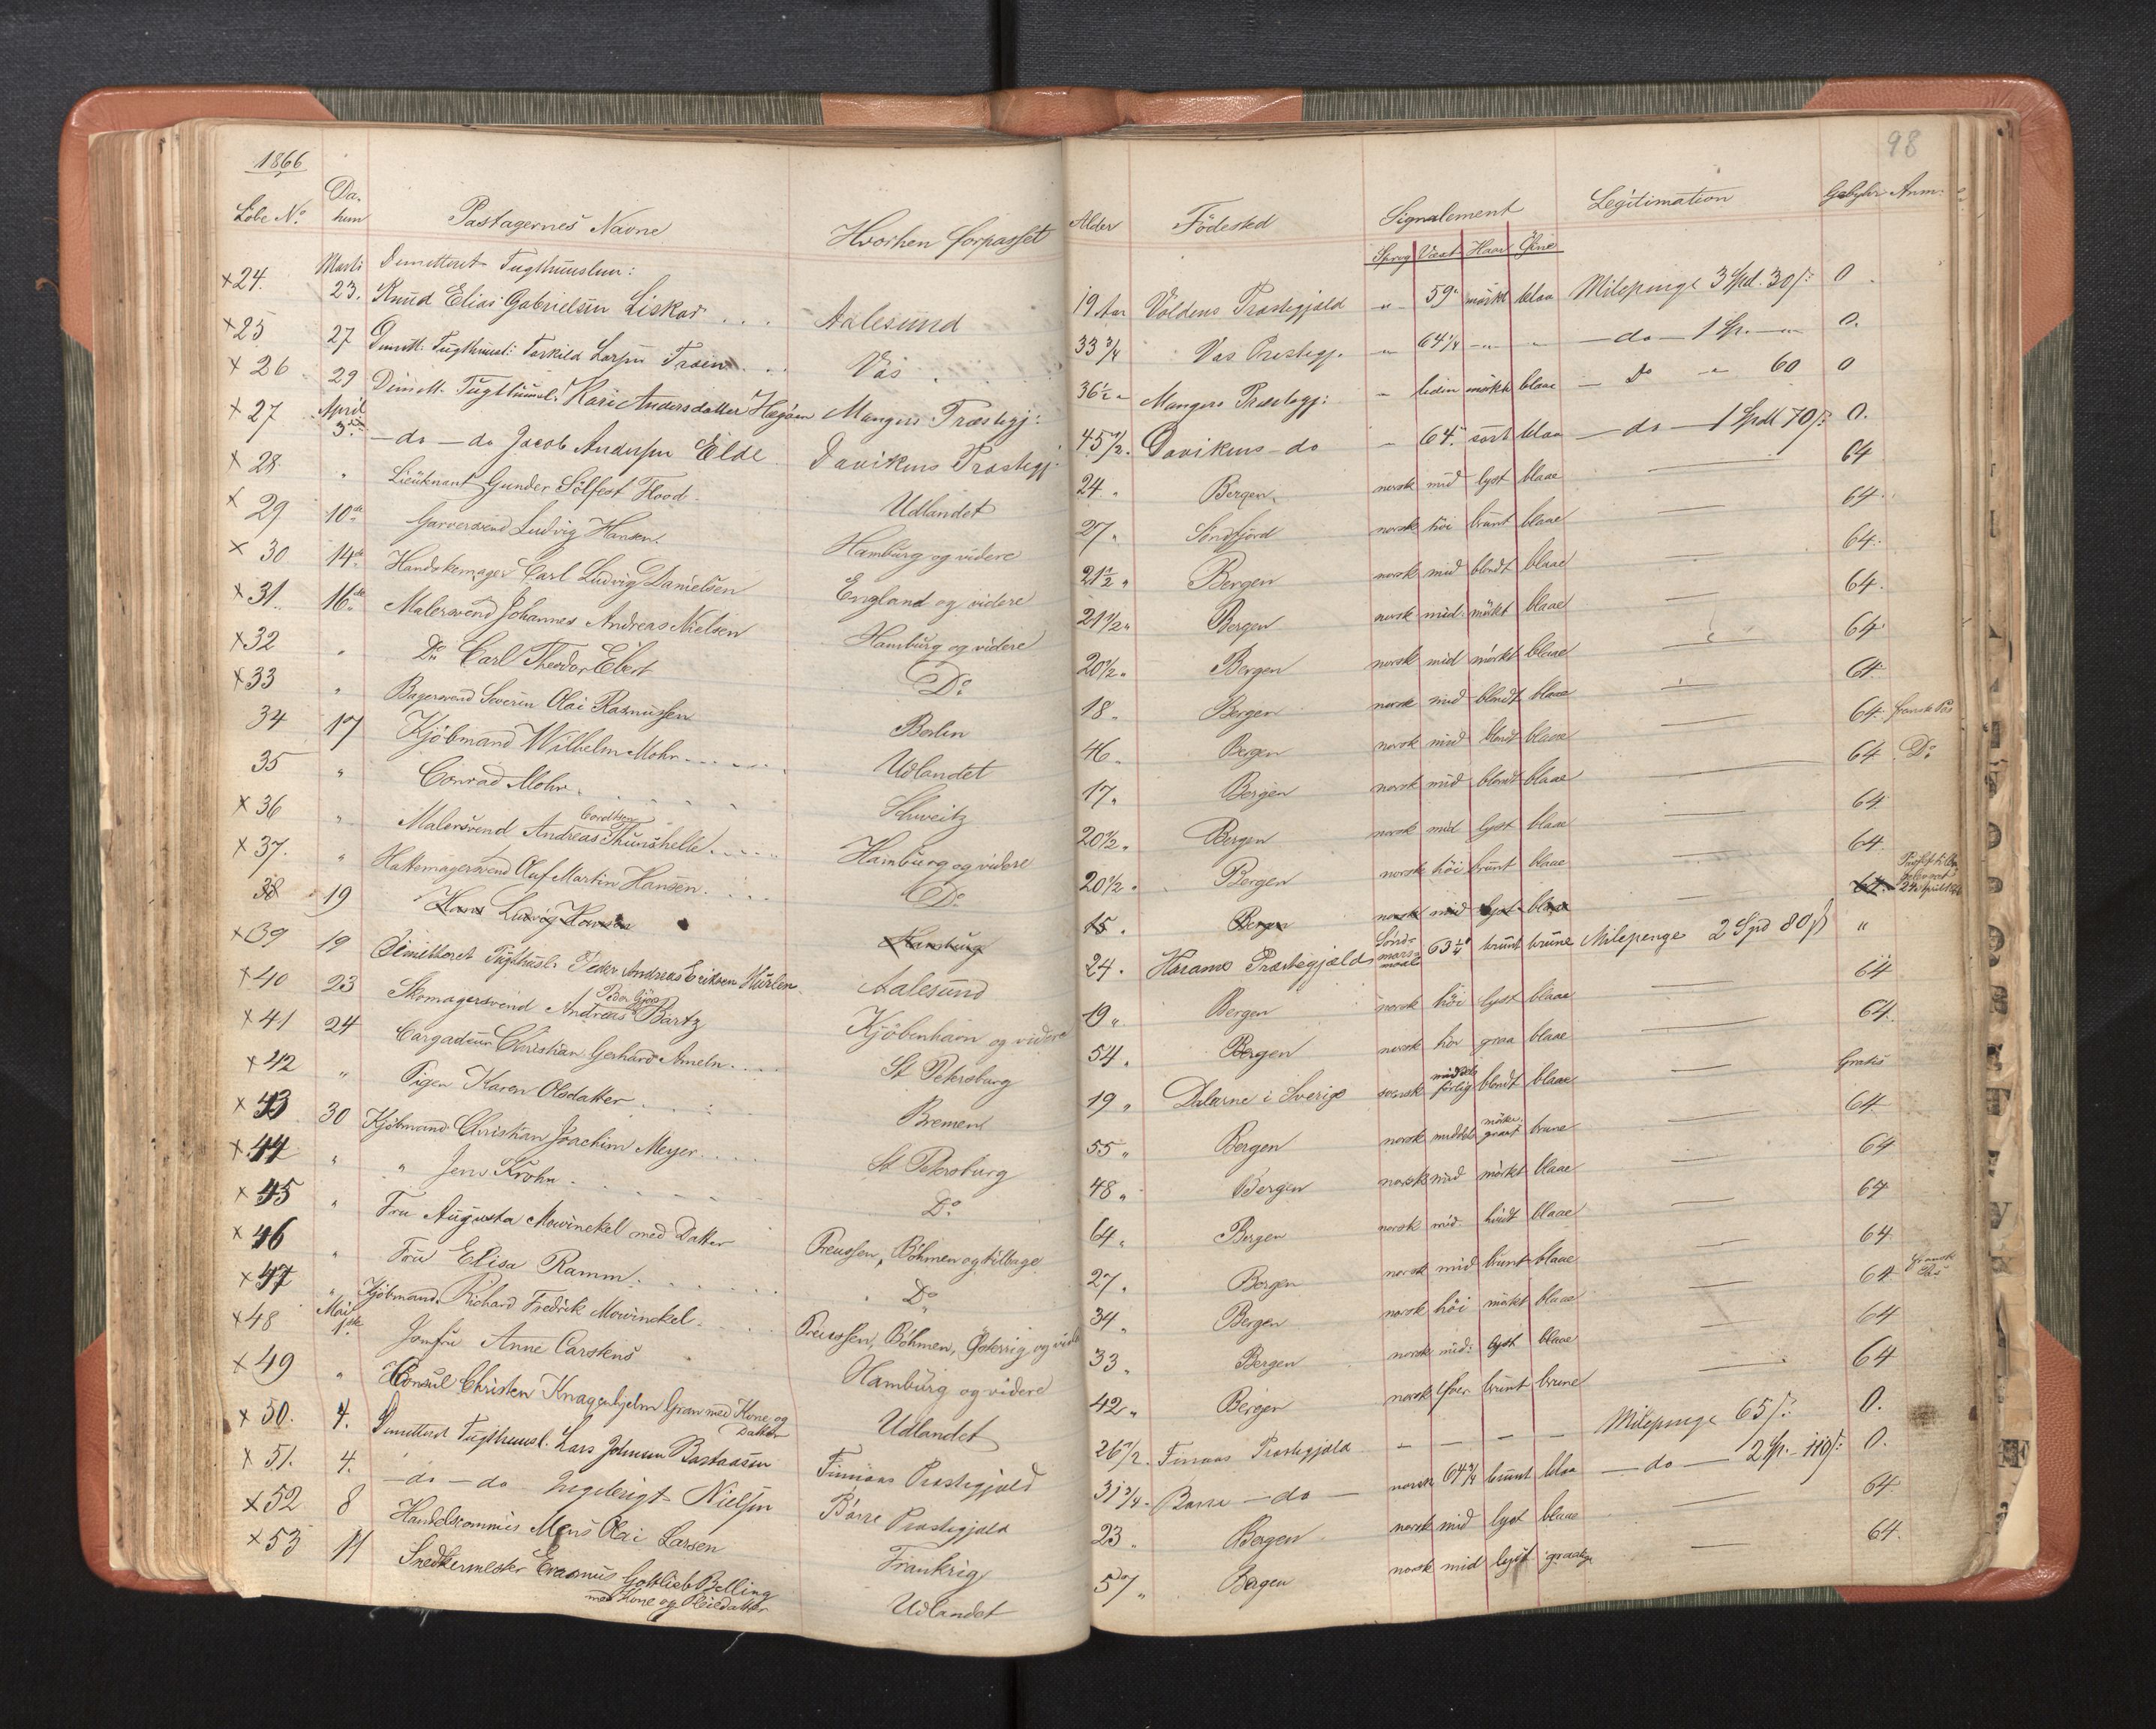 1866
98
Löbe No. Datum Pastagernes Navne Hvorhen forpasset Alder Födested Signalement Legitimation Gebyhr Anm:
Sprog Væxt Haar Öine
×24. Marts 23. Dimitteret Tugthuuslem: Knud Elias Gabrielsen Liskar . . . Aalesund 19 Aar Voldens Præstegjæld " 59" mörkt blaa Milepenge 3 Spd. 30 0
×25 27 Dimitt: Tugthuusl: Torkild Larsen Træen . . . Vos 33 3/4 Vos Præstegj. " 64 1/4 " " — do — 1 Sp. — " 0.
×26 29 Dimitt. Tugthuusl. Kari Andersdatter Hægöen Mangers Præstegj: 36 1/2 " Mangers Præstegj: " liden mörkt blaae — Do " 60 0
×27 April 3die — do — do Jacob Andersen Elde Davikens Præstegj. 45 1/2. Davikens — do " 64. sort blaa — do — 1 Spdl 70 0.
×28 " Lieutenant Gunder Sölfest Flood Udlandet 24 " Bergen norsk mid lyst blaae — 64
×29 10de Garversvend Ludvig Hansen. Hamburg og videre 27 " Söndfjord norsk höi brunt blaae — 64.
×30 14de Handskemager Carl Ludvig Danielsen England og videre 21 1/2 " Bergen norsk mid blondt blaae — 64.
×31. 16de Malersvend Johannes Andreas Nielsen Hamburg og videre 21 1/2 " Bergen norsk mid. mörkt blaae — 64.
×32 " Do Carl Theodor Ebert Do 20 1/2 " Bergen norsk mid mörkt blaae — 64
×33 " Bagersvend Severin Olai Rasmussen Berlin 18 " Bergen norsk mid blondt blaae — 64
34 17 Kjöbmand Wilhelm Mohr . . . . Udlandet 46 " Bergen norsk mid blondt blaae — 64. fransk Pas
35 " Conrad Mohr . . . . Schweitz 17 " Bergen norsk mid blondt blaae — 64 Do
×36 " Malersvend Andreas Cordtsen Thunshelle . . . . Hamburg og videre 20 1/2 " Bergen norsk mid lyst blaae — 64
×37. " Hattemagersvend Oluf Martin Hansen . . . Do 20 1/2 " Bergen norsk höi brunt blaae — 64
38 19 Hans Ludvig Hamburg 15 . Bergen norsk mid lyst blaae — 64.
×39 19 Dimitteret Tugthusl. Peder Andreas Eriksen Hurlen Aalesund 24. Haramo Præstegjæld brunt brune Milepenge 2 Spd 80 "
×40 23 Skomagersvend Andreas Bartz Kjöbenhavn og videre 19 " Bergen norsk höi lyst blaae — 64
×41 24 Cargadeur Christian Gerhard Ameln . . . St. Petersburg 54 " Bergen norsk höi graa blaae — 64.
×42 " Pigen Karen Olsdatter . . . Bremen 19 " Dalarne i Sverige svensk blondt blaae — Gratis
×43 30 Kjöbmand Christian Joachim Meyer . . . St Petersburg 55 " Bergen norsk middel brune — 64
×44 " " Jens Krohn . . . Do 48 " Bergen norsk mid mörkt blaae — 64
×45 " Fru Augusta Mowinckel med Datter Preussen, Böhmen og tilbage 64 " Bergen norsk mid. blaae — 64
×46 " Fru Elisa Ramm . . . Do 27 " Bergen norsk mid brunt blaae — 64
×47 " Kjöbmand. Richard Fredrik Mowinckel . . . Preussen, Böhmen, Österrig og vide 34 " Bergen norsk höi mörkt blaae — 64 fransk Pas
×48 Mai 1ste Jomfru Anne Carstens Hamburg og videre 33 " Bergen norsk mid: lyst blaae — 64
×49 " Consul Christen Knagenhjelm Gran med Kone og Datter Udlandet 42 " Bergen norsk brunt brune — 64
×50. 4. Dimitteret Tugthuusl. Lars Johnsen Finnaas Præstegjæld 26 1/2. Finnaas Præstegjæld — — — — Milepenge 65 0.
×51. 4. — do — do Ingebrigt Nielsen Borre Præstegjæld 31 3/4 " Borre — do — norsk 64 3/4 brunt blaa — do — 2 Sp. 110 0.
×52 8 Handelscommis Mons Olai Larsen Frankrig 23 " Bergen norsk mid lyst blaae — 64.
×53 11 Snedkermester Erasmus Gottlieb Belling med Kone og Pleiedatter Udlandet 57 " Bergen norsk mid lyst — 64.